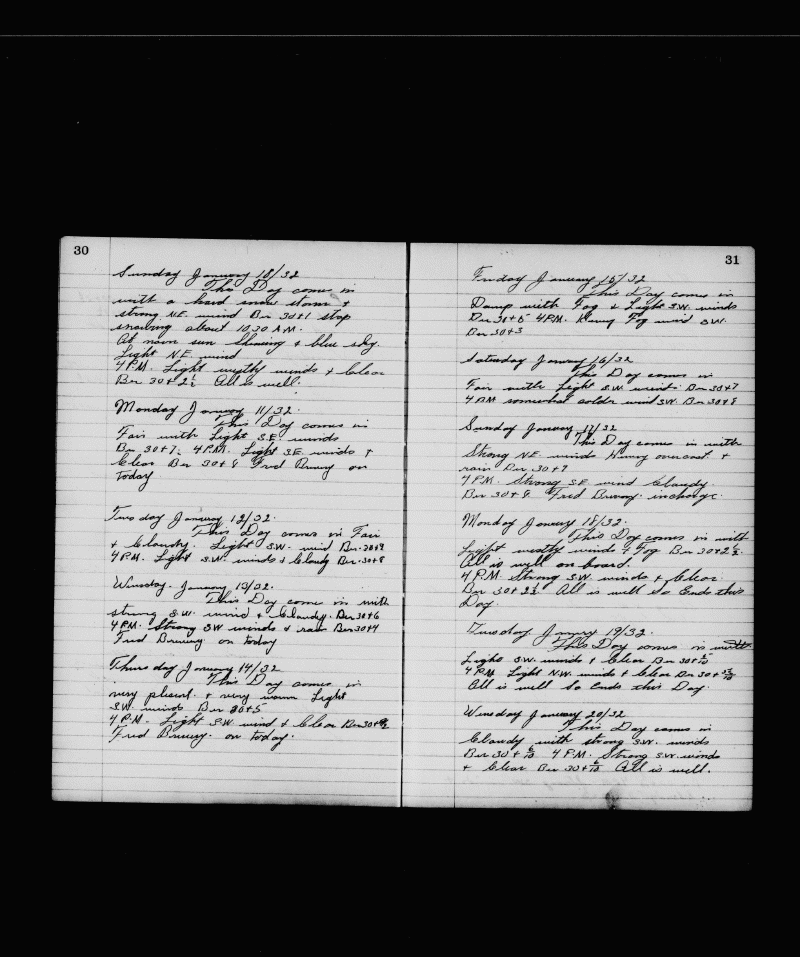 30
Sunday January 10/32
This Day comes in
with a hard snow storm &
strong N.E. wind Bar 30+1 stop
snowing about 10.30 A.M.
At noon sun Shinning & blue sky.
Light N.E. wind
4 P.M. Light westly winds & Clear
Bar 30+2½ All is well.
Monday January 11/32.
This Day comes in
Fair with Light S.E. winds
Bar 30+7. 4 P.M. Light S.E. winds &
Clear Bar 30+8 Fred on
today
Tuesday January 12/32.
This Day comes in Fair
& Cloudy. Light S.W. wind Bar. 30+9
4 P.M. Light S.W. winds & Cloudy Bar. 30+8
Wensday. January 13/32.
This Day come in with
strong S.W. wind & Cloudy. Bar 30+6
4 P.M. Strong SW winds & rain Bar 30+4
Fred on today
Thursday January 14/32
This Day comes in
very plesent & very warm Light
S.W. winds Bar 30+5
4 P.M. Light S.W. wind & Clear
Fred on today.
31
Friday January 15/32
This Day comes in
Damp with Fog & Light S.W. winds
Bar 30+5 4 P.M. Heavy Fog wind S.W.
Bar 30+3
Saturday January 16/32
This Day comes in
Fair with Light S.W. winds Bar 30+7
4 P.M somewhat colder wind SW. Bar 30+8
Sunday January 17/32
This Day comes in with
Strong N.E. winds Heavy overcast &
rain Bar 30+9
4 P.M. Strong S.E. wind Cloudy.
Bar 30+8. Fred incharge.
Monday January 18/32.
This Day comes in with
Light westly winds & Fog Bar 30+2½.
All is well on board.
4 P.M. Strong S.W. winds & Clear
Bar 30+2½ All is well So Ends this
Day.
Tuesday January 19/32.
This Day comes in with
Light SW. winds & Clear Bar 30+
4 P.M. Light N.W. winds & Clear Bar 30+
All is well So Ends this Day.
Wensday January 20/32
This Day comes in
Cloudy with strong S.W. winds
Bar 30+ 4 P.M. Strong S.W. winds
& Clear Bar 30+ All is well.